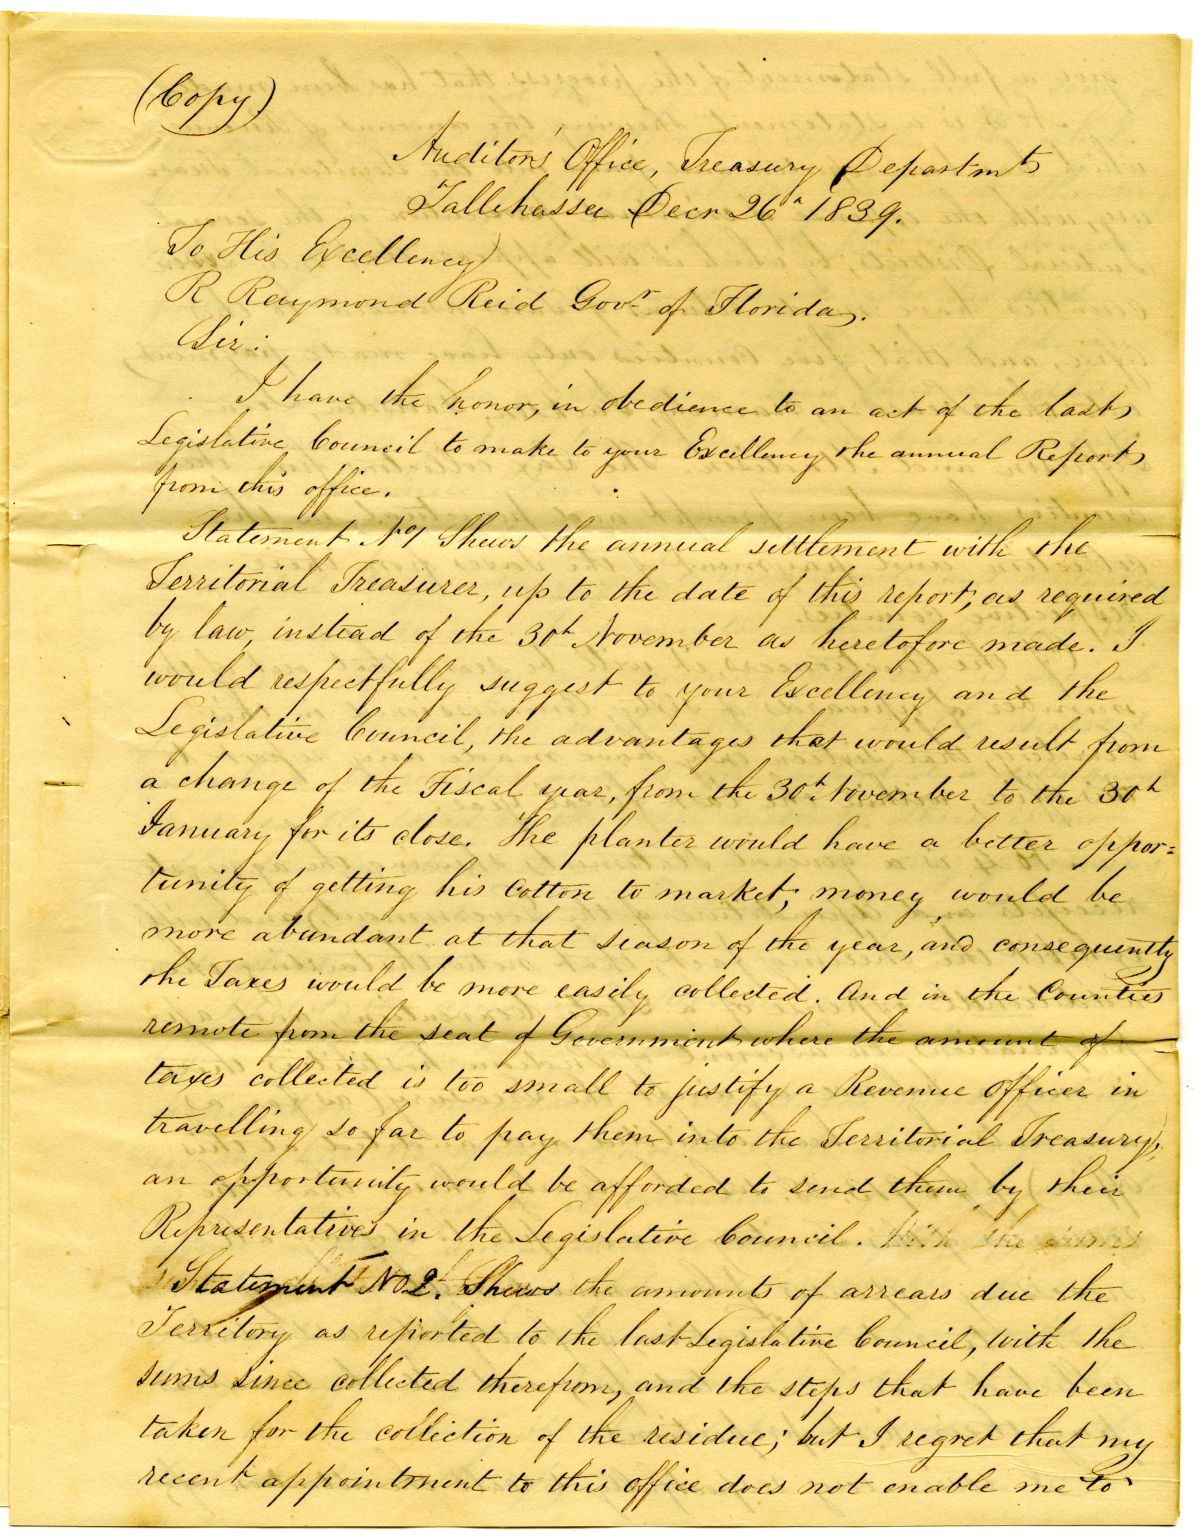 (Copy)
Auditor's Office, Treasury Departmt
Tallehassee Decr 26th 1839.
To His Excellency
R Raymond Reid Govr of Florida.
Sir:
I have the honor, in obedience to an act of the last
Legislative Council to make to your Excellency the annual Report
from this office.
Statement No 1 Shews the annual settlement with the
Territorial Treasurer, up to the date of this report, as required
by law, instead of the 30th November as heretofore made. I
would respectfully suggest to your Excellency and the
Legislative Council, the advantages that would result from
a change of the Fiscal year, from the 30th November to the 30th
January for its close. The planter would have a better oppor=
tunity of getting his Cotton to market; money would be
more abundant at that season of the year, and consequently
the Taxes would be more easily collected. And in the Counties
remote from the seat of Government where the amount of
taxes collected is too small to justify a Revenue Officer in
travelling so far to pay them into the Territorial Treasury,
an opportunity would be afforded to send them by their
Representatives in the Legislative Council.
Statement No 2. Shews the amounts of arrears due the
Territory as reported to the last Legislative Council, with the
sums since collected therefrom, and the steps that have been
taken for the collection of the residue; but I regret that my
recent appointment to this office does not enable me to